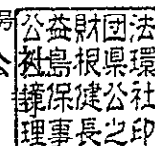 局
公社
公益財団法
人島根県環
境保健公社
理事長之印